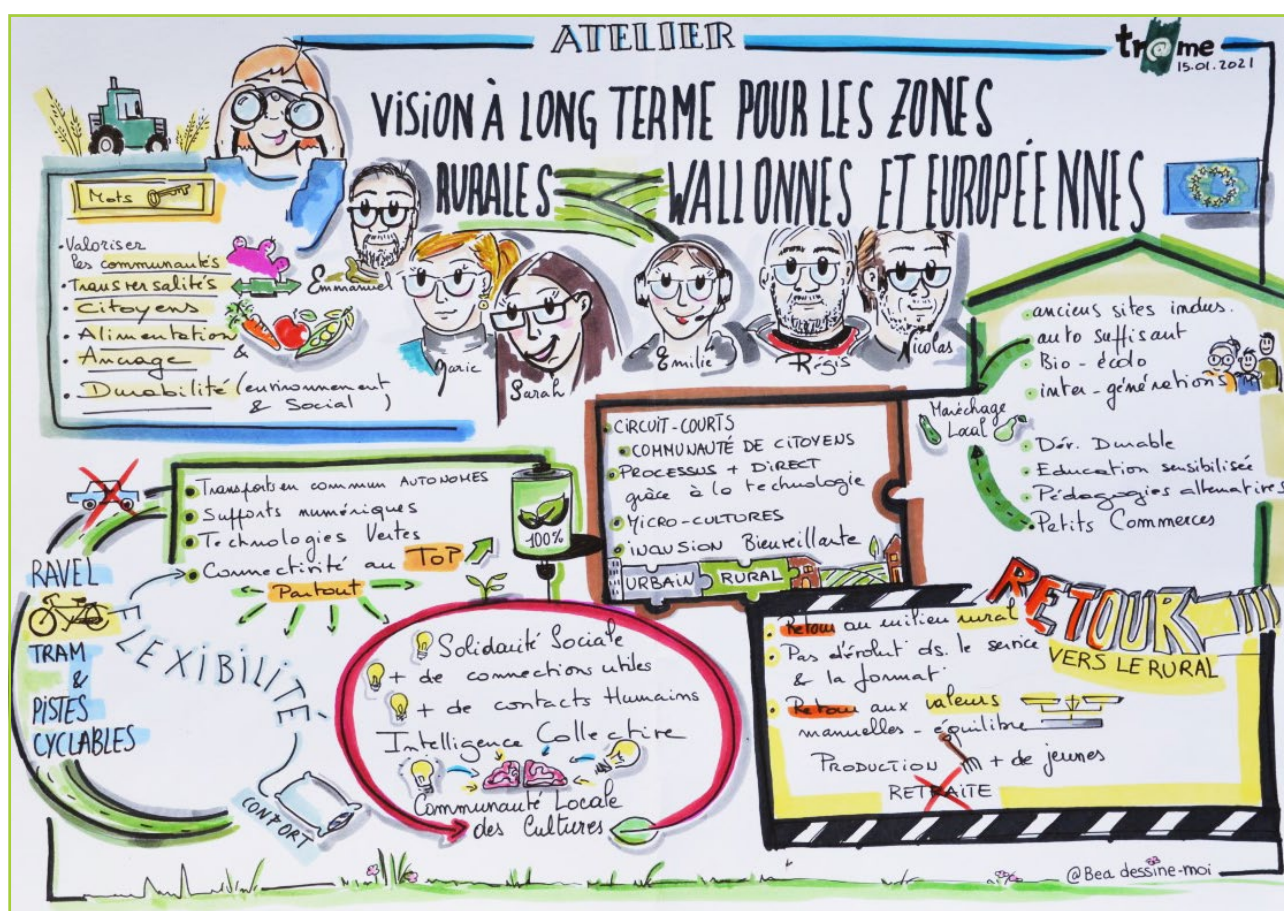 ATELIER
tr@me
15.01.2021
VISION À LONG TERME POUR LES ZONES
RURALES WALLONNES ET EUROPÉENNES
Mots
• Valoriser
les communautés
• Transversalités
• Citoyens
• Alimentation
&
• Ancrage
• Durabilité (environnement
& Social )
Emmanuel
Marie
Sarah
Emilie
Régis
Nicolas
• anciens sites indus.
• auto suffisant
• Bio - écolo
• inter - générations
Maréchage
Local
• Dév. Durable
• Education sensibilisée
• Pédagogies alternatives
• Petits Commerces
• CIRCUIT-COURTS
• COMMUNAUTÉ DE CITOYENS
• PROCESSUS + DIRECT
grâce à la technologie
• MICRO-CULTURES
• INCLUSION Bienveillante
URBAIN RURAL
• Transports en commun AUTONOMES
• Supports numériques
• Technologies Vertes
• Connectivité au TOP
Partout
100%
RAVEL
TRAM
&
PISTES
CYCLABLES
FLEXIBILITÉ
CONFORT
Solidarité Sociale
+ de connections utiles
+ de contacts Humains
Intelligence Collective
Communauté Locale
des Cultures
RETOUR
VERS LE RURAL
• Retour au milieu rural
• Pas d'évolut° ds. le service
& la format°
• Retour aux valeurs
manuelles - équilibre
PRODUCTION + de jeunes
RETRAITE
@Bea dessine-moi